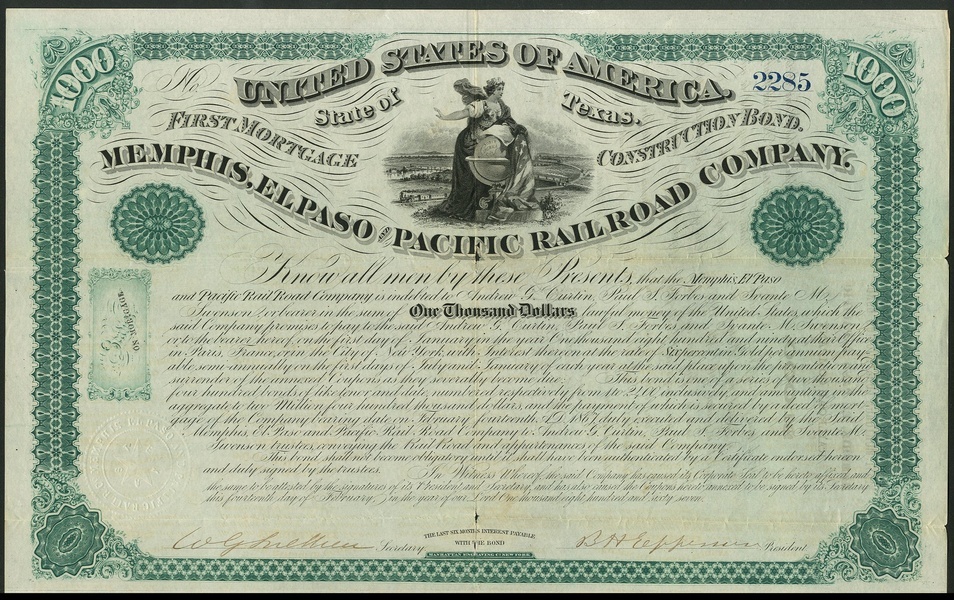 1000
1000
No
2285
UNITED STATES OF AMERICA.
State of Texas.
FIRST MORTGAGE CONSTRUCTION BOND.
MEMPHIS, EL PASO AND PACIFIC RAILROAD COMPANY.
Know all men by these Presents, that the Memphis, El Paso
and Pacific Rail Road Company is indebted to Andrew G. Curtin, Paul S. Forbes and Swante M.
Swenson Trustees in the sum of One Thousand Dollars lawful money of the United States, which the
said Company promises to pay to the said Andrew G. Curtin, Paul S. Forbes and Swante M. Swenson
or to the bearer hereof, on the first day of January in the year One thousand eight hundred and ninety at their Office
in Paris, France, or in the City of New York, with Interest thereon at the rate of Six per cent in Gold per annum pay-
able semi-annually on the first days of July and January of each year at the said place upon the presentation and
surrender of the annexed Coupons as they severally become due. This bond is one of a series of two thousand
four hundred bonds of like tenor and date, numbered respectively from 1 to 2400 inclusively, and amounting in the
aggregate to two Million four hundred thousand dollars and the payment of which is secured by a deed of mort-
gage of the Company bearing date on February fourteenth, 1867, duly executed and delivered by the said
Memphis, El Paso and Pacific Rail Road Company to Andrew G. Curtin, Paul S. Forbes, and Swante M.
Swenson trustees, conveying the Rail Road and appurtenances of the said Company.
This bond shall not become obligatory until it shall have been authenticated by a Certificate endorsed hereon
and duly signed by the trustees. In Witness Whereof, the said Company has caused its Corporate Seal to be hereto affixed, and
the same to be attested by the signatures of its President and Secretary, and has also caused the Coupons hereto annexed to be signed by its Secretary
this fourteenth day of February, in the year of our Lord One thousand eight hundred and sixty seven.
Secretary
THE LAST SIX MONTHS INTEREST PAYABLE
WITH THE BOND
B H Epperson President
MANHATTAN ENGRAVING CO. NEW YORK